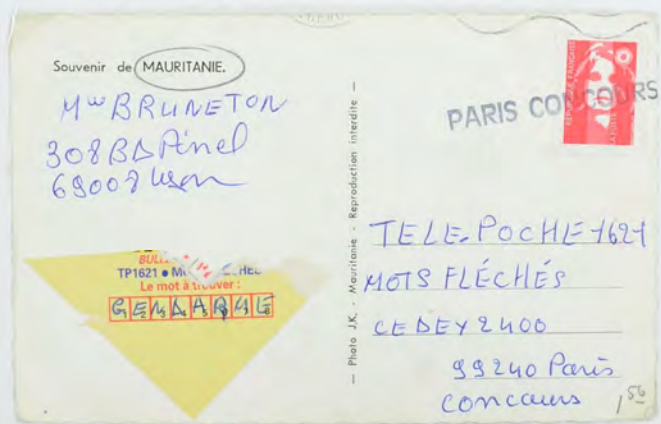 Souvenir de MAURITANIE.
Mme BRUNETON
308 BD Pinel
69008 Lyon
TP1621 •
Le mot à trouver :
GENDARME
— Photo J.K. - Mauritanie - Reproduction interdite —
PARIS CONCOURS
RÉPUBLIQUE FRANÇAISE
TELE-POCHE 1621
MOTS FLÉCHÉS
CEDEX 2400
99240 Paris
concours
1 50